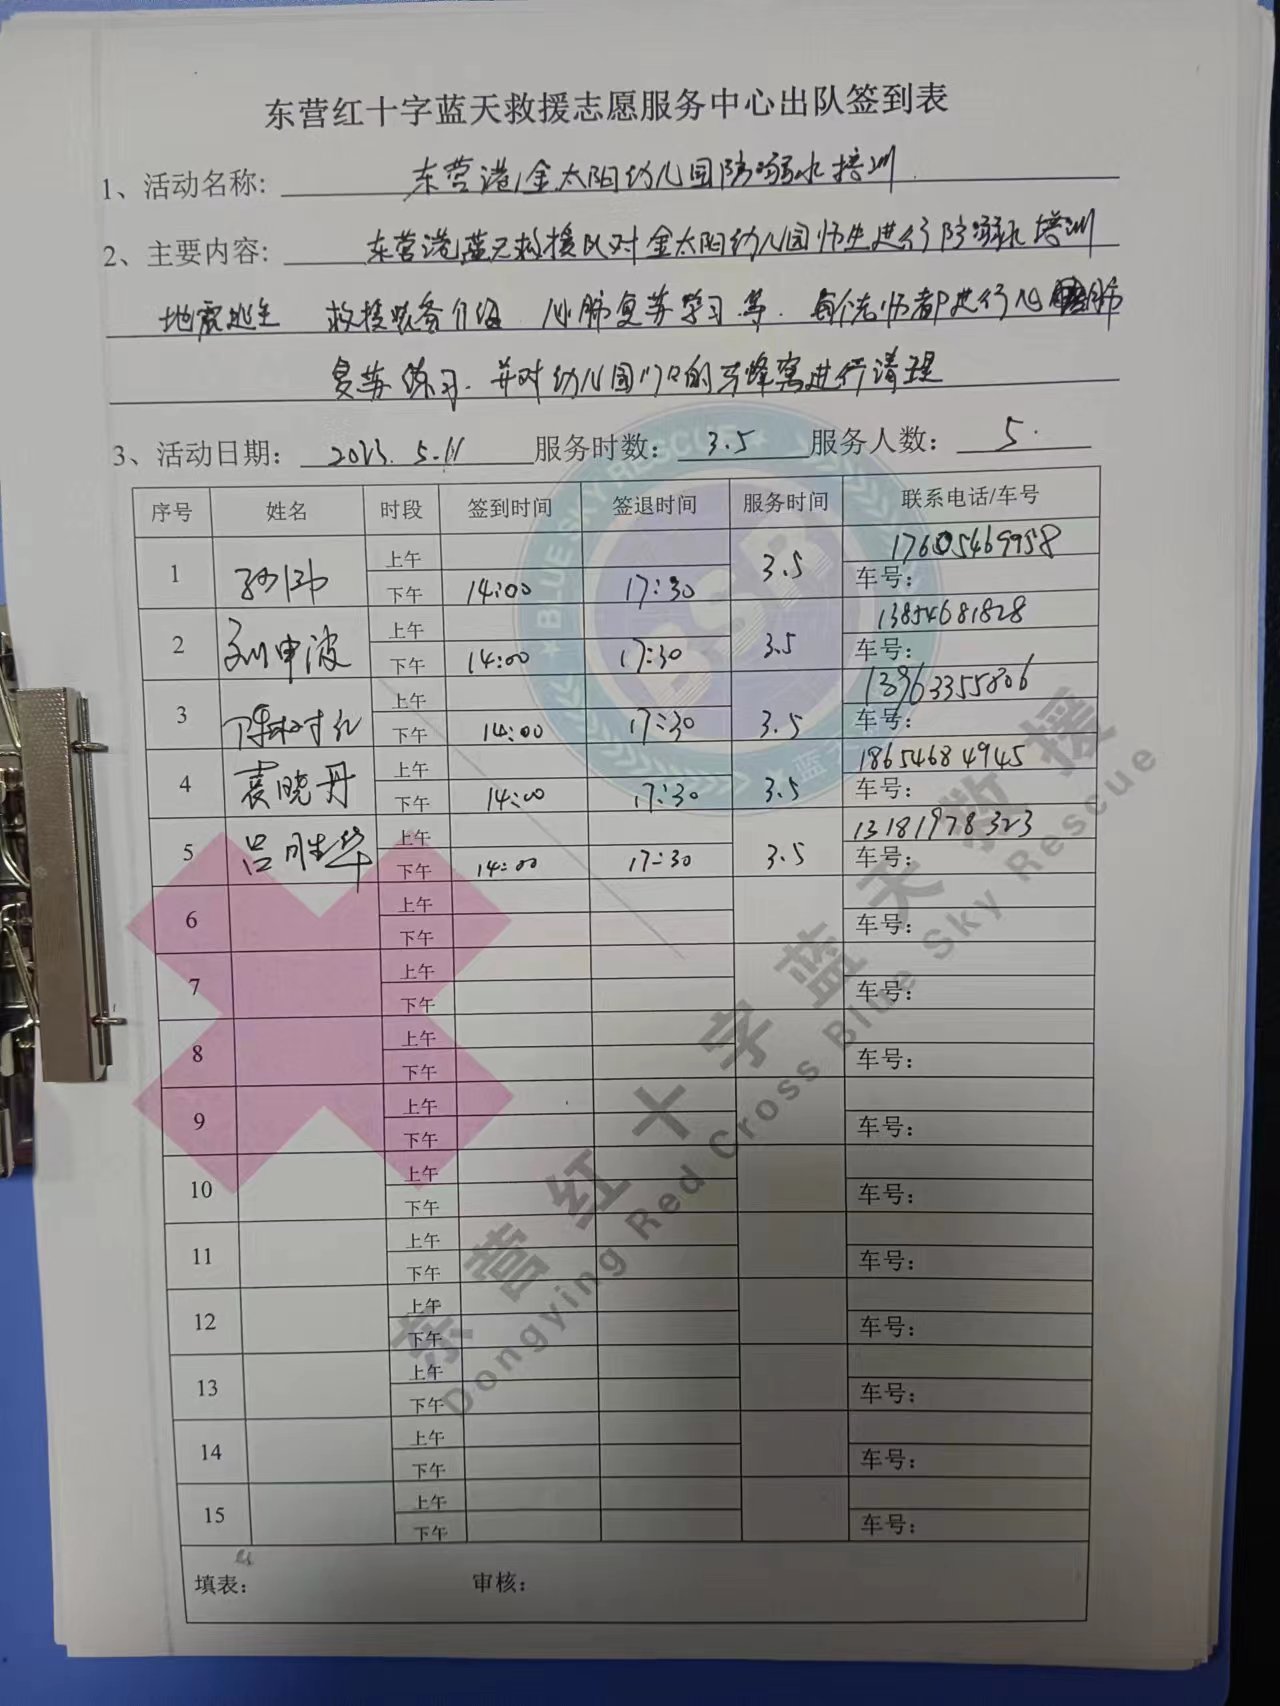 东营红十字蓝天救援志愿服务中心出队签到表
1、活动名称: 东营港金太阳幼儿园防溺水培训
2、主要内容: 东营港蓝天救援队对金太阳幼儿园师生进行防溺水培训
地震逃生 救援装备介绍 心肺复苏学习等. 每个老师都进行心肺
复苏练习. 并对幼儿园门口的马蜂窝进行清理
3、活动日期: 2023.5.11 服务时数: 3.5 服务人数: 5.
序号 姓名 时段 签到时间 签退时间 服务时间 联系电话/车号
1 上午 3.5 17605469958
下午 14:00 17:30 车号:
2 刘申波 上午 3.5 13854681828
下午 14:00 17:30 车号:
3 上午 3.5 13963355806
下午 14:00 17:30 车号:
4 袁晓丹 上午 3.5 18654684945
下午 14:00 17:30 车号:
5 吕胜华 上午 3.5 13181978323
下午 14:00 17:30 车号:
6 上午
下午 车号:
7 上午
下午 车号:
8 上午
下午 车号:
9 上午
下午 车号:
10 上午
下午 车号:
11 上午
下午 车号:
12 上午
下午 车号:
13 上午
下午 车号:
14 上午
下午 车号:
15 上午
下午 车号:
填表: 审核:
BLUE SKY RESCUE
BSR
东营红十字蓝天救援
Dongying Red Cross Blue Sky Rescue